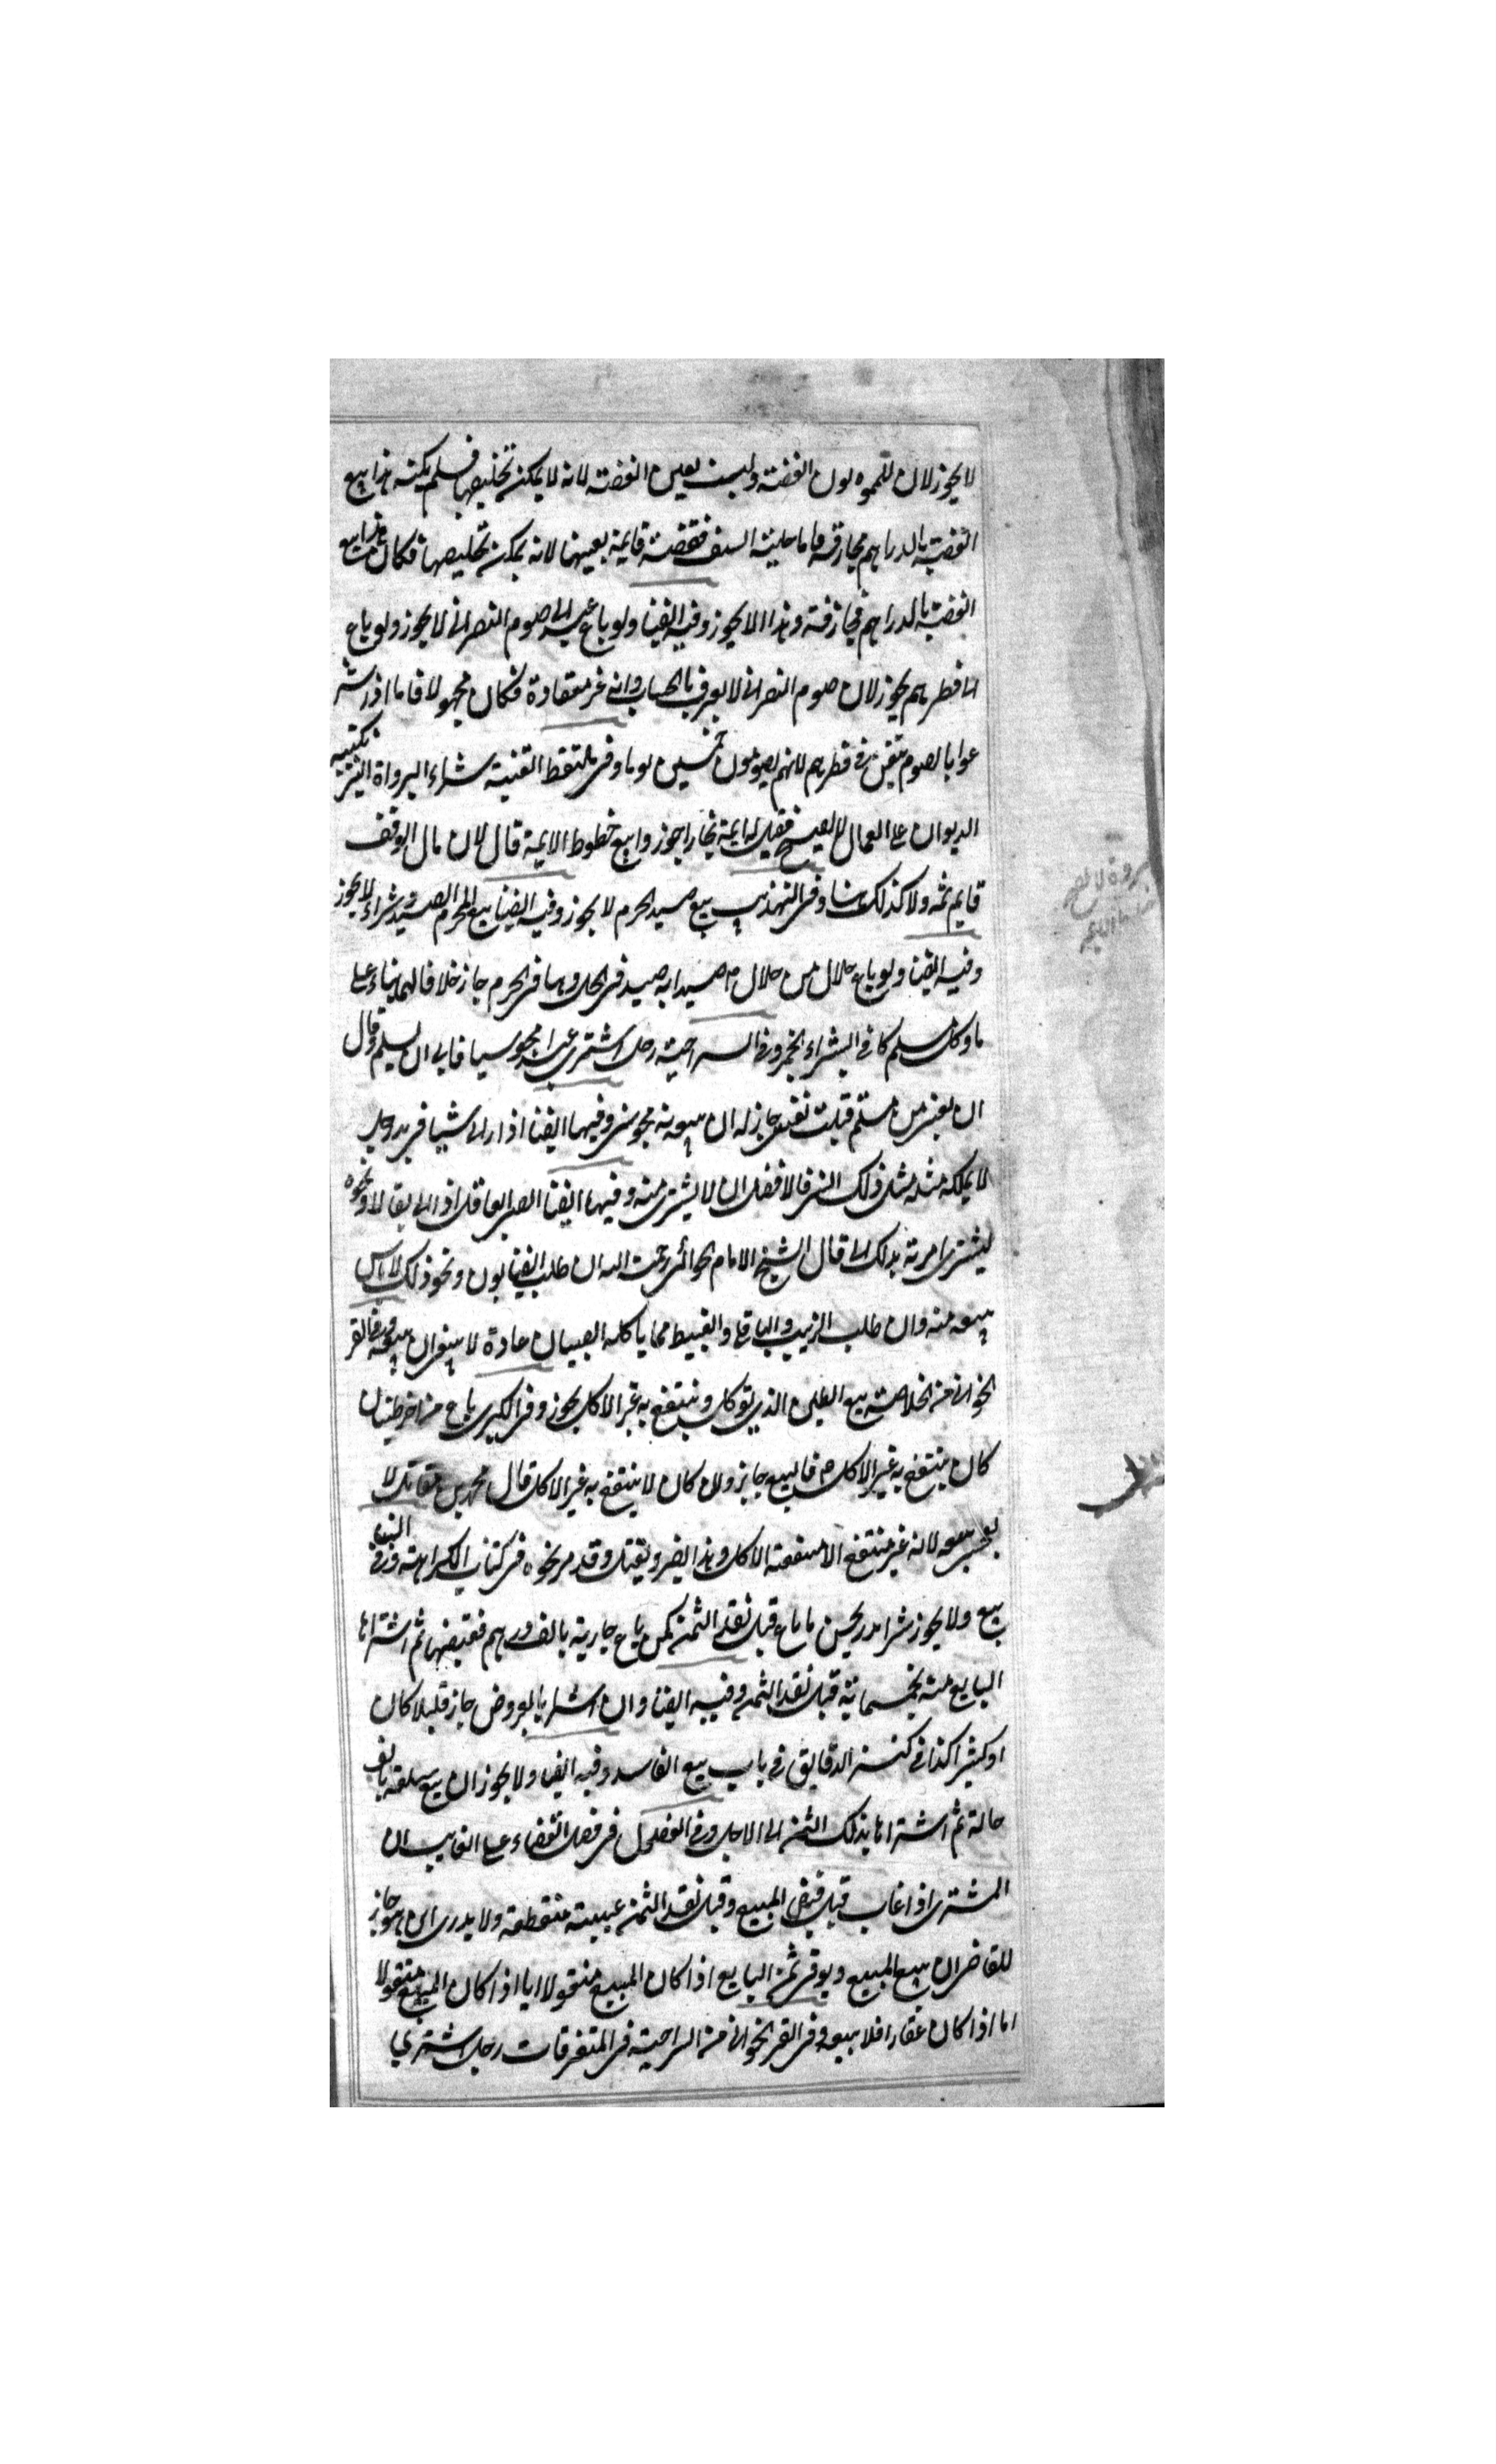 لا يجوز لان المموه لون الفضة وليست بعين الفضة لانه لا يمكن تخليصها فلم يكن هذا بيع
الفضة بالدراهم مجازفة فاما حلية السيف ففضة قايمة بعينها لانه يمكن تخليصها فكان هذا بيع
الفضة بالدراهم مجازفة وهذا لا يجوز وفيه ايضا ولو باع عبدا الى صوم النصراني لا يجوز ولو باع
الى فطرهم يجوز لان صوم النصراني لا يعرف بالحساب وانه غير معتادة فكان مجهولا فاما اذا شر
عوا بالصوم تيقن في فطرهم لانهم يصومون خمسين يوما وفي ملتقط القنية شراء البرواة التي يكتبه
الديوان على العمال لا يصح فقيل له ايمة بخارا جوزوا بيع خطوط الايمة قال لان مال الوقف
قايم ثمه ولا كذلك هنا وفي التهذيب بيع صيد الحرم لا يجوز وفيه ايضا بيع المحرم الصيد وشراءه لا يجوز
وفيه ايضا ولو باع حلال من حلال صيدا به صيد في الحل وهما في الحرم جاز خلافا لهما بناء على
ما وكل مسلم كافرا بشراء الخمر وفي السراجية رجل اشترى عبدا مجوسيا فابى ان يسلم وقال
ان بعتني من مسلم قتلت نفسي جاز له ان يبيعه من مجوسي وفيها ايضا اذا راى شيئا في يد رجل
لا يملكه مثله مثل ذلك الشي فالافضل ان لا يشترى منه وفيها ايضا الصبي العاقل اذا اتى بقالا ونحوه
ليشترى امرته بذلك قال الشيخ الامام الحلوائي رحمت الله ان طلب الصابون ونحو ذلك لا باس
ببيعه منه وان طلب الزبيب والباقلي والقبيط مما ياكله الصبيان عادة لا ينبغي ان يبيعه وفي القر
اخواني من الخلاصة بيع الطين الذي يوكل وينتفع به غير الاكل يجوز وفي الكبرى باع من اخر طينا ان
كان ينتفع به غير الاكل فالبيع جايز وان كان لا ينتفع به غير الاكل قال محمد بن مقاتل لا
يعجبني بيعه لانه غير منتفع الا منفعة الاكل وهذا يضر ويقتل وقد مر نحوه في كتاب الكراهة وفي
بيع ولا يجوز شرا ما باع قبل نقد الثمن كمن باع جارية بالف درهم فقبضها ثم اشتراها
البايع منه بخمسماية قبل نقد الثمن وفيه ايضا وان اشترا بالعروض جاز قليلا كان
او كثيرا كذا في كنز الدقايق في باب بيع الفاسد وفيه ايضا ولا يجوز ان يبيع سلعة بالف
حالة ثم اشتراها بذلك الثمن الى الاجل وفي الفصل في فصل القضاء على الغايب ان
المشترى اذا غاب قبل قبض المبيع وقبل نقد الثمن غيبية منقطعة ولا يدرى اين هو جاز
للقاضي ان يبيع المبيع ويوفي ثمن البايع اذا كان المبيع منقولا اذا كان المبيع منقولا
اما اذا كان عقارا فلا يبيعه وفي القر اخواني من السراجية في المتفرقات رجل اشترى